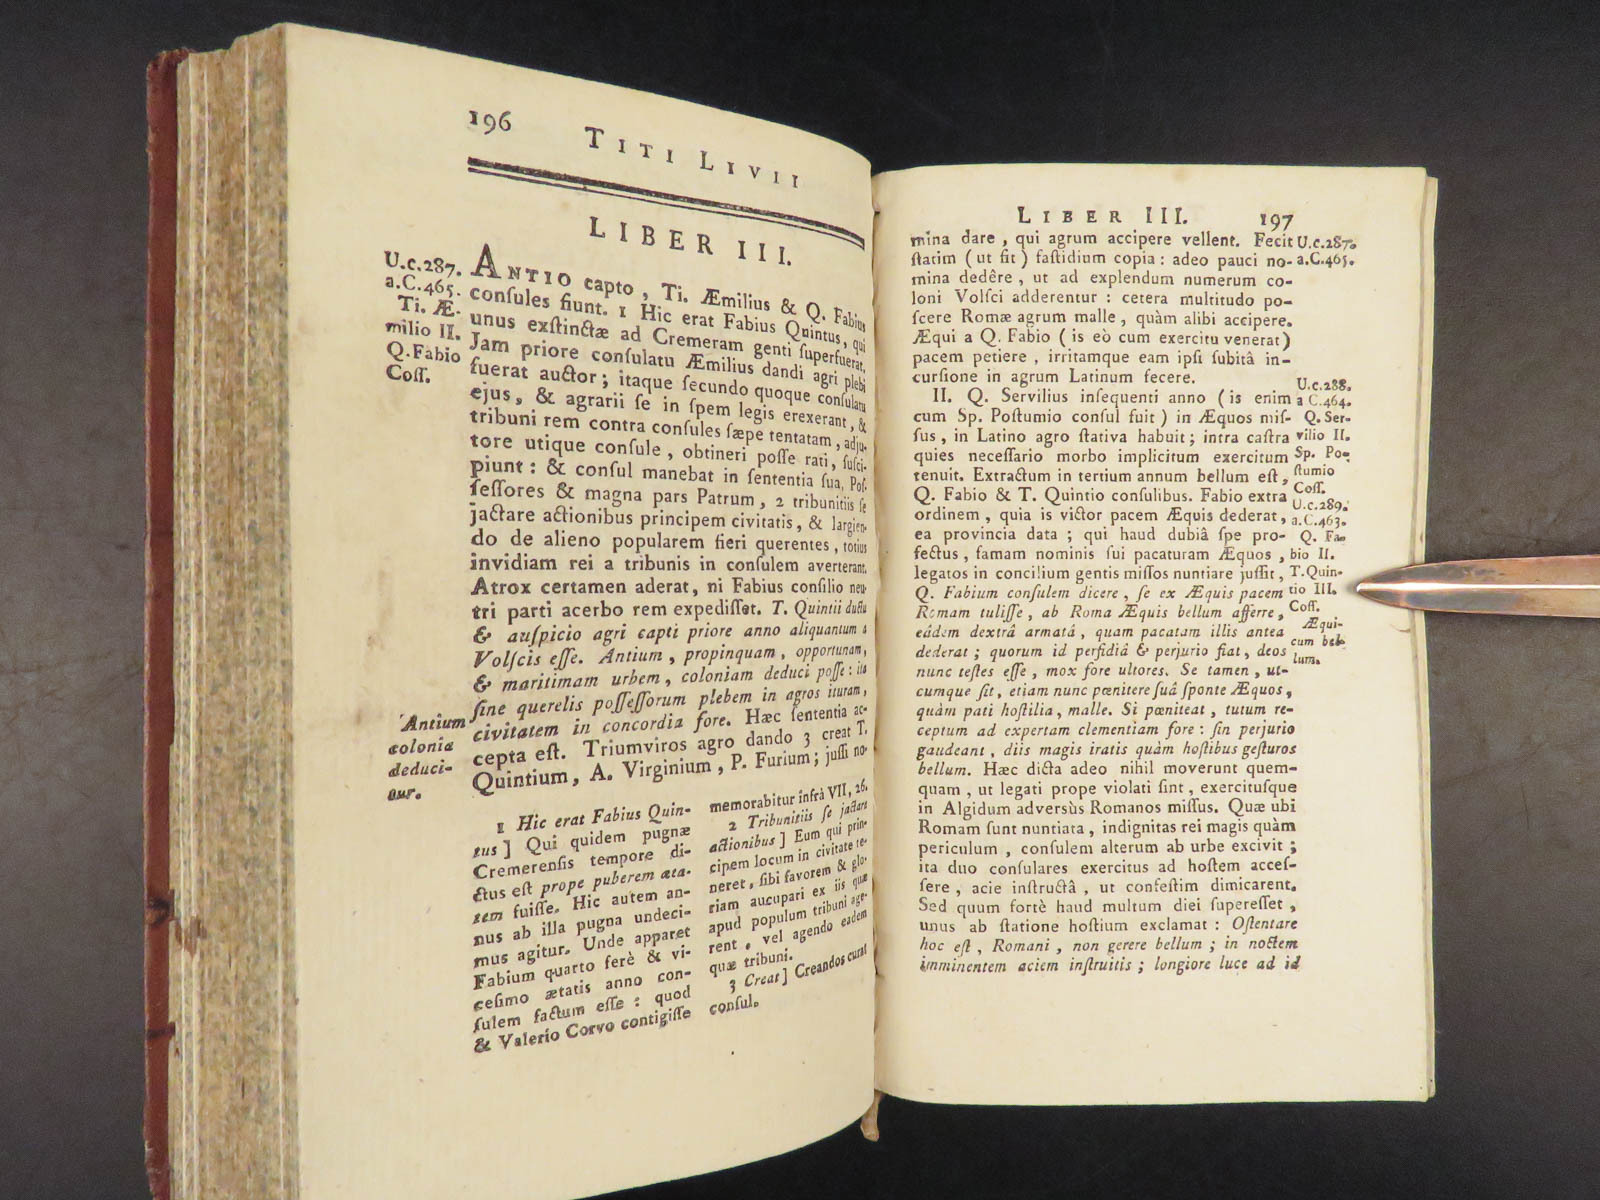 196
TITI LIVII
LIBER III.
U.c.287.
a.C.465.
Ti. Æ-
milio II.
Q. Fabio
Coſſ.
ANTIO capto, Ti. Æmilius & Q. Fabius
conſules fiunt. 1 Hic erat Fabius Quintus, qui
unus exſtinctæ ad Cremeram genti ſuperfuerat.
Jam priore conſulatu Æmilius dandi agri plebi
fuerat auctor; itaque ſecundo quoque conſulatu
ejus, & agrarii ſe in ſpem legis erexerant, &
tribuni rem contra conſules ſæpe tentatam, adju-
tore utique conſule, obtineri poſſe rati, ſuſci-
piunt: & conſul manebat in ſententia ſua. Poſ-
ſeſſores & magna pars Patrum, 2 tribunitiis ſe
jactare actionibus principem civitatis, & largien-
do de alieno popularem fieri querentes, totius
invidiam rei a tribunis in conſulem averterant.
Atrox certamen aderat, ni Fabius conſilio neu-
tri parti acerbo rem expediſſet. T. Quintii ductu
& auſpicio agri capti priore anno aliquantum a
Volſcis eſſe. Antium, propinquam, opportunam,
& maritimam urbem, coloniam deduci poſſe: ita
ſine querelis poſſeſſorum plebem in agros ituram,
civitatem in concordia fore. Hæc ſententia ac-
cepta eſt. Triumviros agro dando 3 creat T.
Quintium, A. Virginium, P. Furium; juſſi no-
Antium
colonia
deduci-
tur.
1 Hic erat Fabius Quin-
tus] Qui quidem pugnæ
Cremerenſis tempore di-
ctus eſt prope puberem æta-
tem fuiſſe. Hic autem an-
nus ab illa pugna undeci-
mus agitur. Unde apparet
Fabium quarto ferè & vi-
ceſimo ætatis anno con-
ſulem factum eſſe: quod
& Valerio Corvo contigiſſe
memorabitur infrà VII, 26.
2 Tribunitiis ſe jactare
actionibus] Eum qui prin-
cipem locum in civitate te-
neret, ſibi favorem & glo-
riam aucupari ex iis quæ
apud populum tribuni age-
rent, vel agendo eadem
quæ tribuni.
3 Creat] Creandos curat
conſul.
LIBER III. 197
mina dare, qui agrum accipere vellent. Fecit
ſtatim (ut fit) faſtidium copia: adeo pauci no-
mina dedêre, ut ad explendum numerum co-
loni Volſci adderentur: cetera multitudo po-
ſcere Romæ agrum malle, quàm alibi accipere.
Æqui a Q. Fabio (is eò cum exercitu venerat)
pacem petiere, irritamque eam ipſi ſubitâ in-
curſione in agrum Latinum fecere.
II. Q. Servilius inſequenti anno (is enim
cum Sp. Poſtumio conſul fuit) in Æquos miſ-
ſus, in Latino agro ſtativa habuit; intra caſtra
quies neceſſario morbo implicitum exercitum
tenuit. Extractum in tertium annum bellum eſt,
Q. Fabio & T. Quintio conſulibus. Fabio extra
ordinem, quia is victor pacem Æquis dederat,
ea provincia data; qui haud dubiâ ſpe pro-
fectus, famam nominis ſui pacaturam Æquos,
legatos in concilium gentis miſſos nuntiare juſſit,
Q. Fabium conſulem dicere, ſe ex Æquis pacem
Romam tuliſſe, ab Roma Æquis bellum afferre,
eâdem dextrâ armatâ, quam pacatam illis antea
dederat; quorum id perfidiâ & perjurio fiat, deos
nunc teſtes eſſe, mox fore ultores. Se tamen, ut-
cumque ſit, etiam nunc pœnitere ſuâ ſponte Æquos,
quàm pati hoſtilia, malle. Si pœniteat, tutum re-
ceptum ad expertam clementiam fore: ſin perjurio
gaudeant, diis magis iratis quàm hoſtibus geſturos
bellum. Hæc dicta adeo nihil moverunt quem-
quam, ut legati prope violati ſint, exercituſque
in Algidum adversùs Romanos miſſus. Quæ ubi
Romam ſunt nuntiata, indignitas rei magis quàm
periculum, conſulem alterum ab urbe excivit;
ita duo conſulares exercitus ad hoſtem acceſ-
ſere, acie inſtructâ, ut confeſtim dimicarent.
Sed quum fortè haud multum diei ſupereſſet,
unus ab ſtatione hoſtium exclamat: Oſtentare
hoc eſt, Romani, non gerere bellum; in noctem
imminentem aciem inſtruitis; longiore luce ad id
U.c.287.
a.C.465.
U.c.288.
a C.464.
Q. Ser-
vilio II.
Sp. Po-
ſtumio
Coſſ.
U.c.289.
a.C.463.
Q. Fa-
bio II.
T. Quin-
tio III.
Coſſ.
Æqui-
cum bel-
lum.